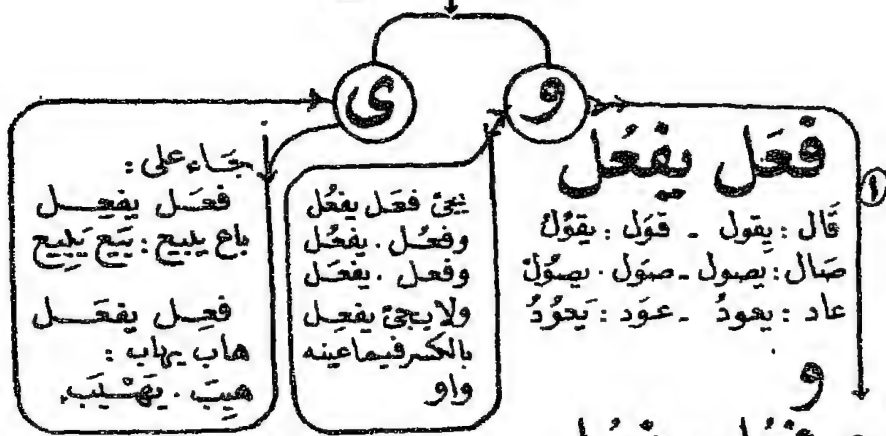 و
ى
١
فعَل يفعُل
قَال : يقول - قوَل : يقوُل
صَال : يصول - صوَل . يصوُل
عاد : يعودُ - عوَد : يَعوُدُ
و
يجئ فعَل يفعُل
وفعُل . يفعُل
وفعل . يفعَل
ولا يجئ يفعِل
بالكسر فيما عينه
واو
جَاء على :
فعَل يفعِل
باع يبيع : بَيَع يَبيِع
فعِل يفعَل
هاب يهاب :
هيِبَ . يَهْيَبَ